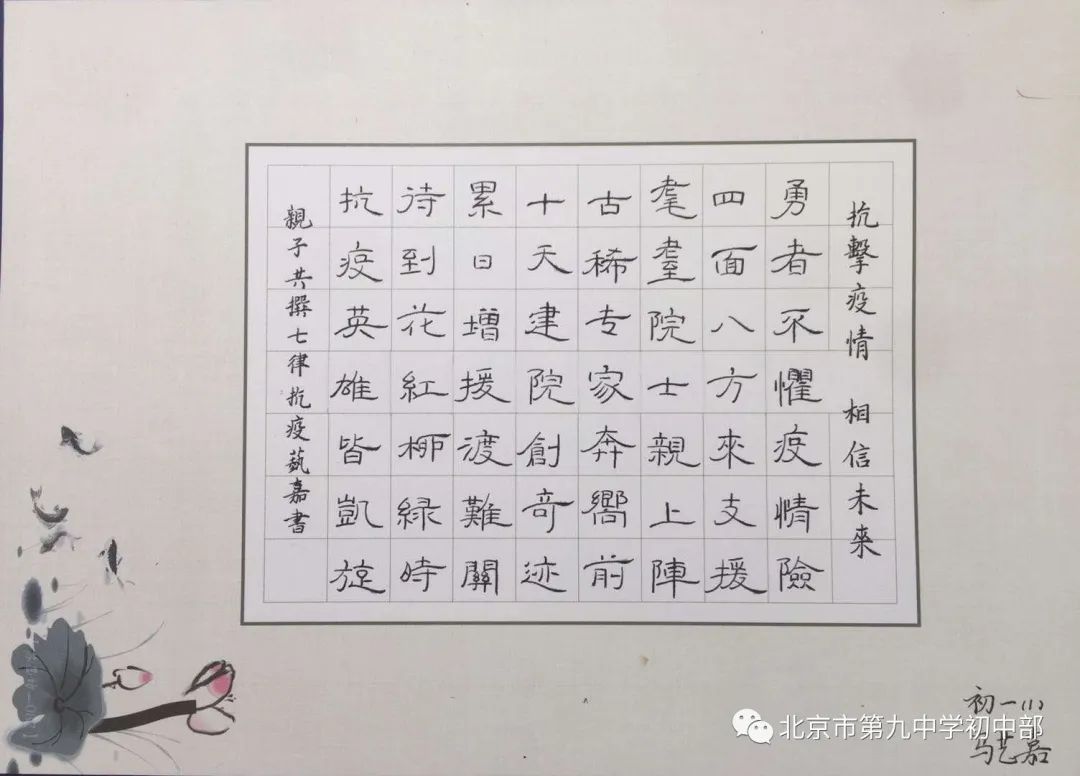 抗擊疫情 相信未來
勇者不懼疫情險
四面八方來支援
耄耋院士親上陣
古稀专家奔嚮前
十天建院創奇迹
累日增援渡難關
待到花紅栁緑時
抗疫英雄皆凱旋
親子共撰七律抗疫蓺嘉書
初一(1)
马艺嘉
北京市第九中学初中部